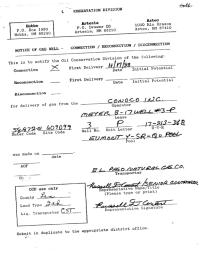 CONSERVATION DIVISION
Hobbs
P.O. Box 1980
Hobbs, NM 88240
Artesia
P.O. Drawer DD
Artesia, NM 88210
Aztec
1000 Rio Brazos
Aztec, NM 87410
NOTICE OF GAS WELL - CONNECTION / RECONNECTION / DISCONNECTION
This is to notify the Oil Conservation Division of the following:
Connection X First Delivery
Date Initial Potential
Reconnection First Delivery
Date Initial Potential
Disconnection
for delivery of gas from the CONOCO INC.
Operator
METER
Lease
3 P 17-21S-36E
Meter Code Site Code Well No. Unit Letter S-T-R
EUMONT Y-SR-QU POOL
Pool
was made on
date
AOF
EL PASO NATURAL GAS CO.
Transporter
OCD use only
County Lea
Land Type
Liq. Transporter
Representative Name/Title
(Please type or print)
Representative Signature
Submit in duplicate to the appropriate district office.